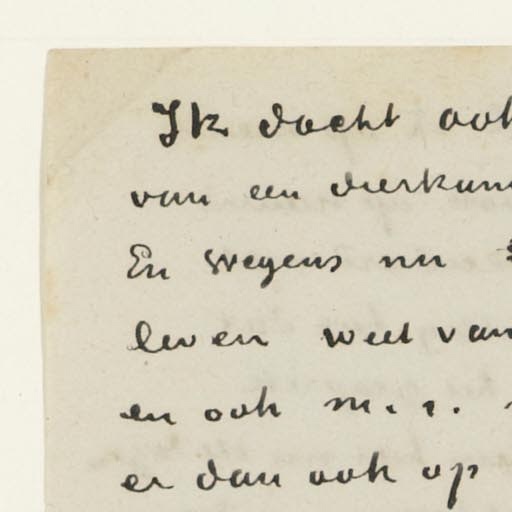 Ik dacht ook
van een dierkun
En wegens nu
leven weet van
en ook m. i.
er dan ook op